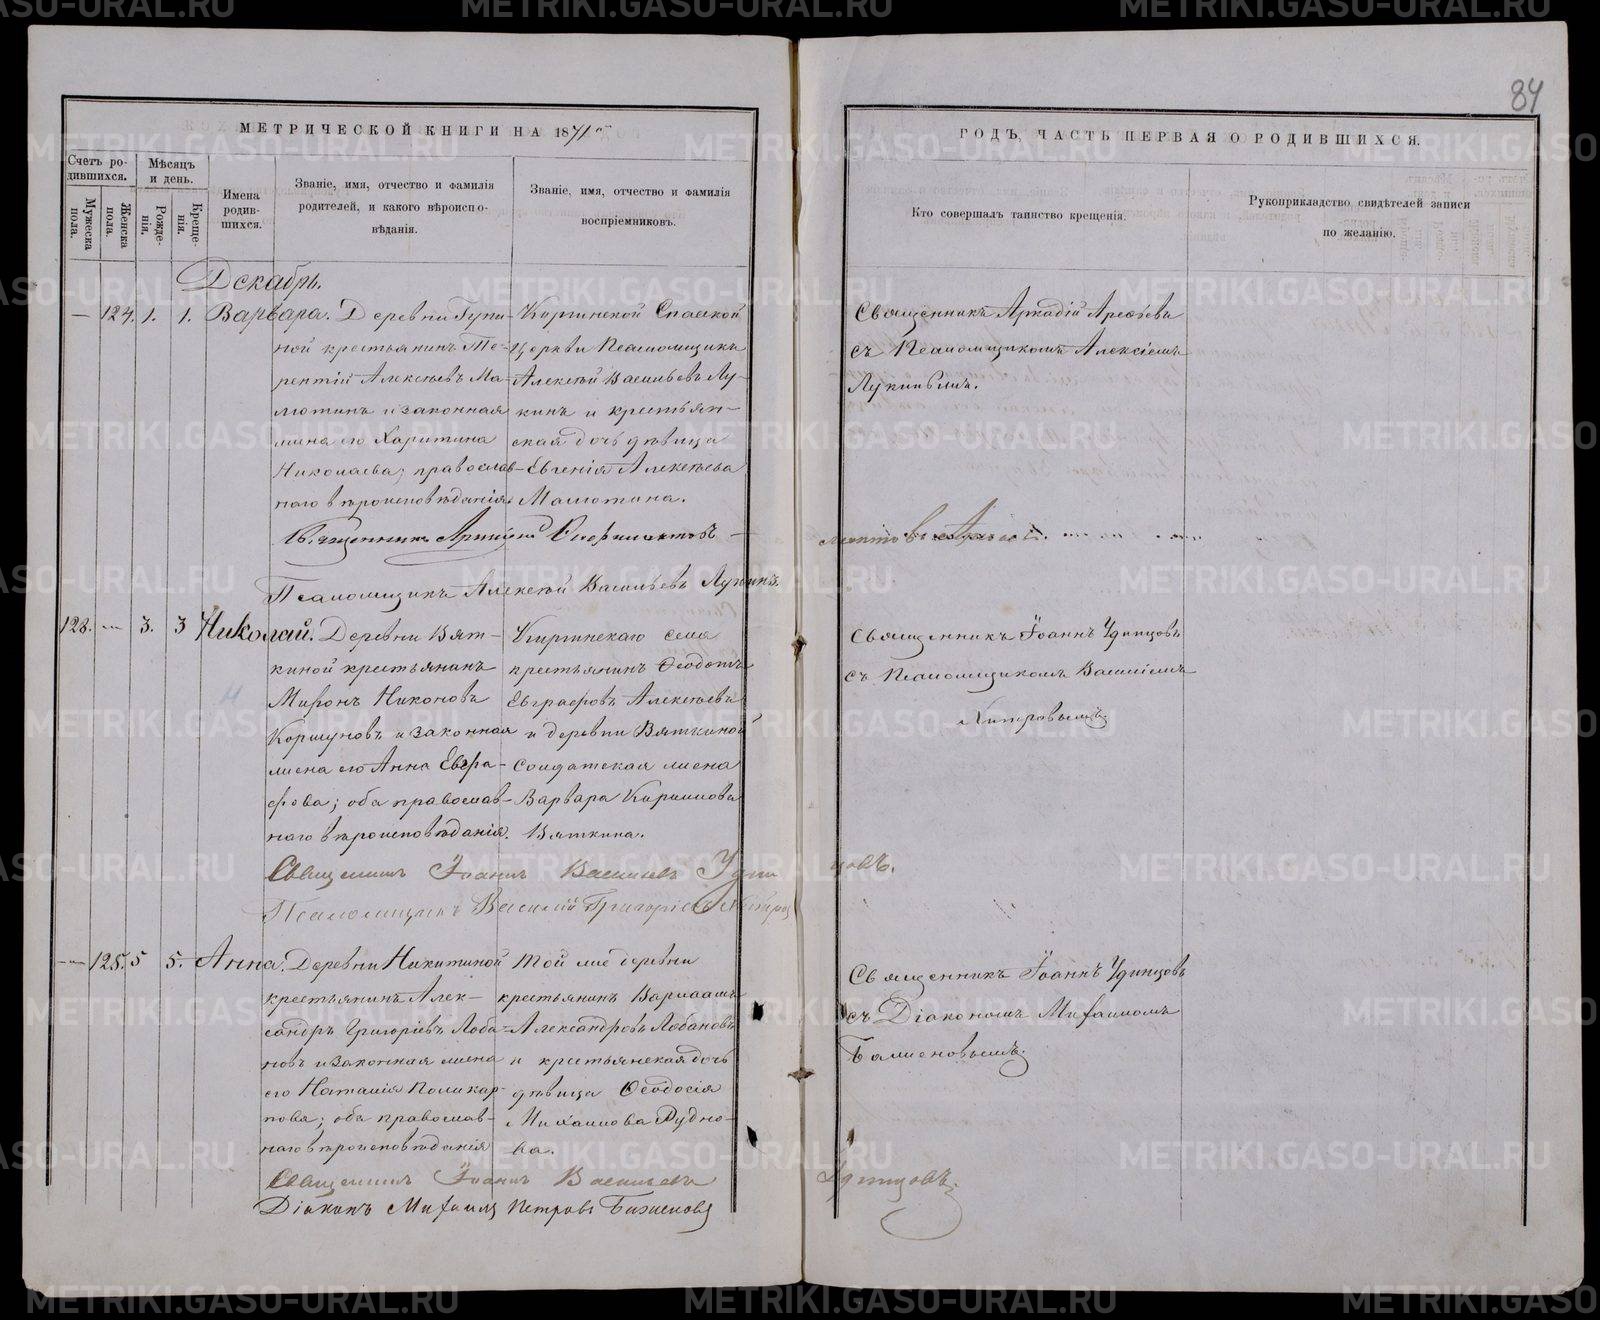 84
МЕТРИЧЕСКОЙ КНИГИ НА 1871 г
ГОДЪ, ЧАСТЬ ПЕРВАЯ О РОДИВШИХСЯ.
Счетъ родившихся.
Мужеска пола.
Женска пола.
Мѣсяцъ и день.
Рожденія.
Крещенія.
Имена родившихся.
Званіе, имя, отчество и фамилія
родителей, и какого вѣроиспо-
вѣданія.
Званіе, имя, отчество и фамилія
воспріемниковъ.
Кто совершалъ таинство крещенія.
Рукоприкладство свидѣтелей записи
по желанію.
Декабрь.
— 124. 1. 1. Варвара. Деревни
ной крестьянинъ Те-
рентій Алексѣевъ Ма-
мютинъ и законная
жена его Харитина
Николаева; православ-
наго вѣроисповѣданія.
Киргинской Спасской
церкви Псаломщикъ
Алексѣй Васильевъ Лу-
кинъ и крестьян-
ская дочь дѣвица
Евгенія Алексѣева
Мамютина.
Священникъ Аркадій Арефьевъ
съ Псаломщикомъ Алексіемъ
Лукинымъ.
Священникъ
Псаломщикъ Алексѣй Васильевъ Лукинъ.
128. — 3. 3 Николай. Деревни Вят-
киной крестьянинъ
Миронъ Никоновъ
Коршуновъ и законная
жена его Анна Евгра-
фова; оба православ-
наго вѣроисповѣданія.
Киргинскаго села
крестьянинъ Ѳеодотъ
Евграфовъ Алексѣевъ
и деревни Вяткиной
солдатская жена
Варвара Кириллова
Вяткина.
Священникъ Іоаннъ Удинцовъ
съ Псаломщикомъ Василіемъ
Хитровымъ
Священникъ Іоаннъ Васильевъ Удинцовъ.
Псаломщикъ Василій Григорьевъ Хитровъ
— 125. 5 5. Анна. Деревни Никитиной
крестьянинъ Алек-
сандръ Григорьевъ Лоба-
новъ и законная жена
его Наталія Поликар-
пова; оба православ-
наго вѣроисповѣданія
Той же деревни
крестьянинъ Варлаамъ
Александровъ Лобановъ
и крестьянская дочь
дѣвица Ѳеодосія
Михайлова Рудно-
ва.
Священникъ Іоаннъ Удинцовъ
съ Діакономъ Михаиломъ
Баженовымъ.
Священникъ Іоаннъ Васильевъ Удинцовъ
Діаконъ Михаилъ Петровъ Баженовъ
METRIKI.GASO-URAL.RU